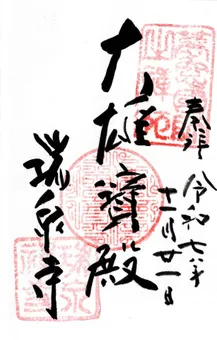 奉拝
令和七年
十一月廿一日
大雄寶殿
瑞泉寺